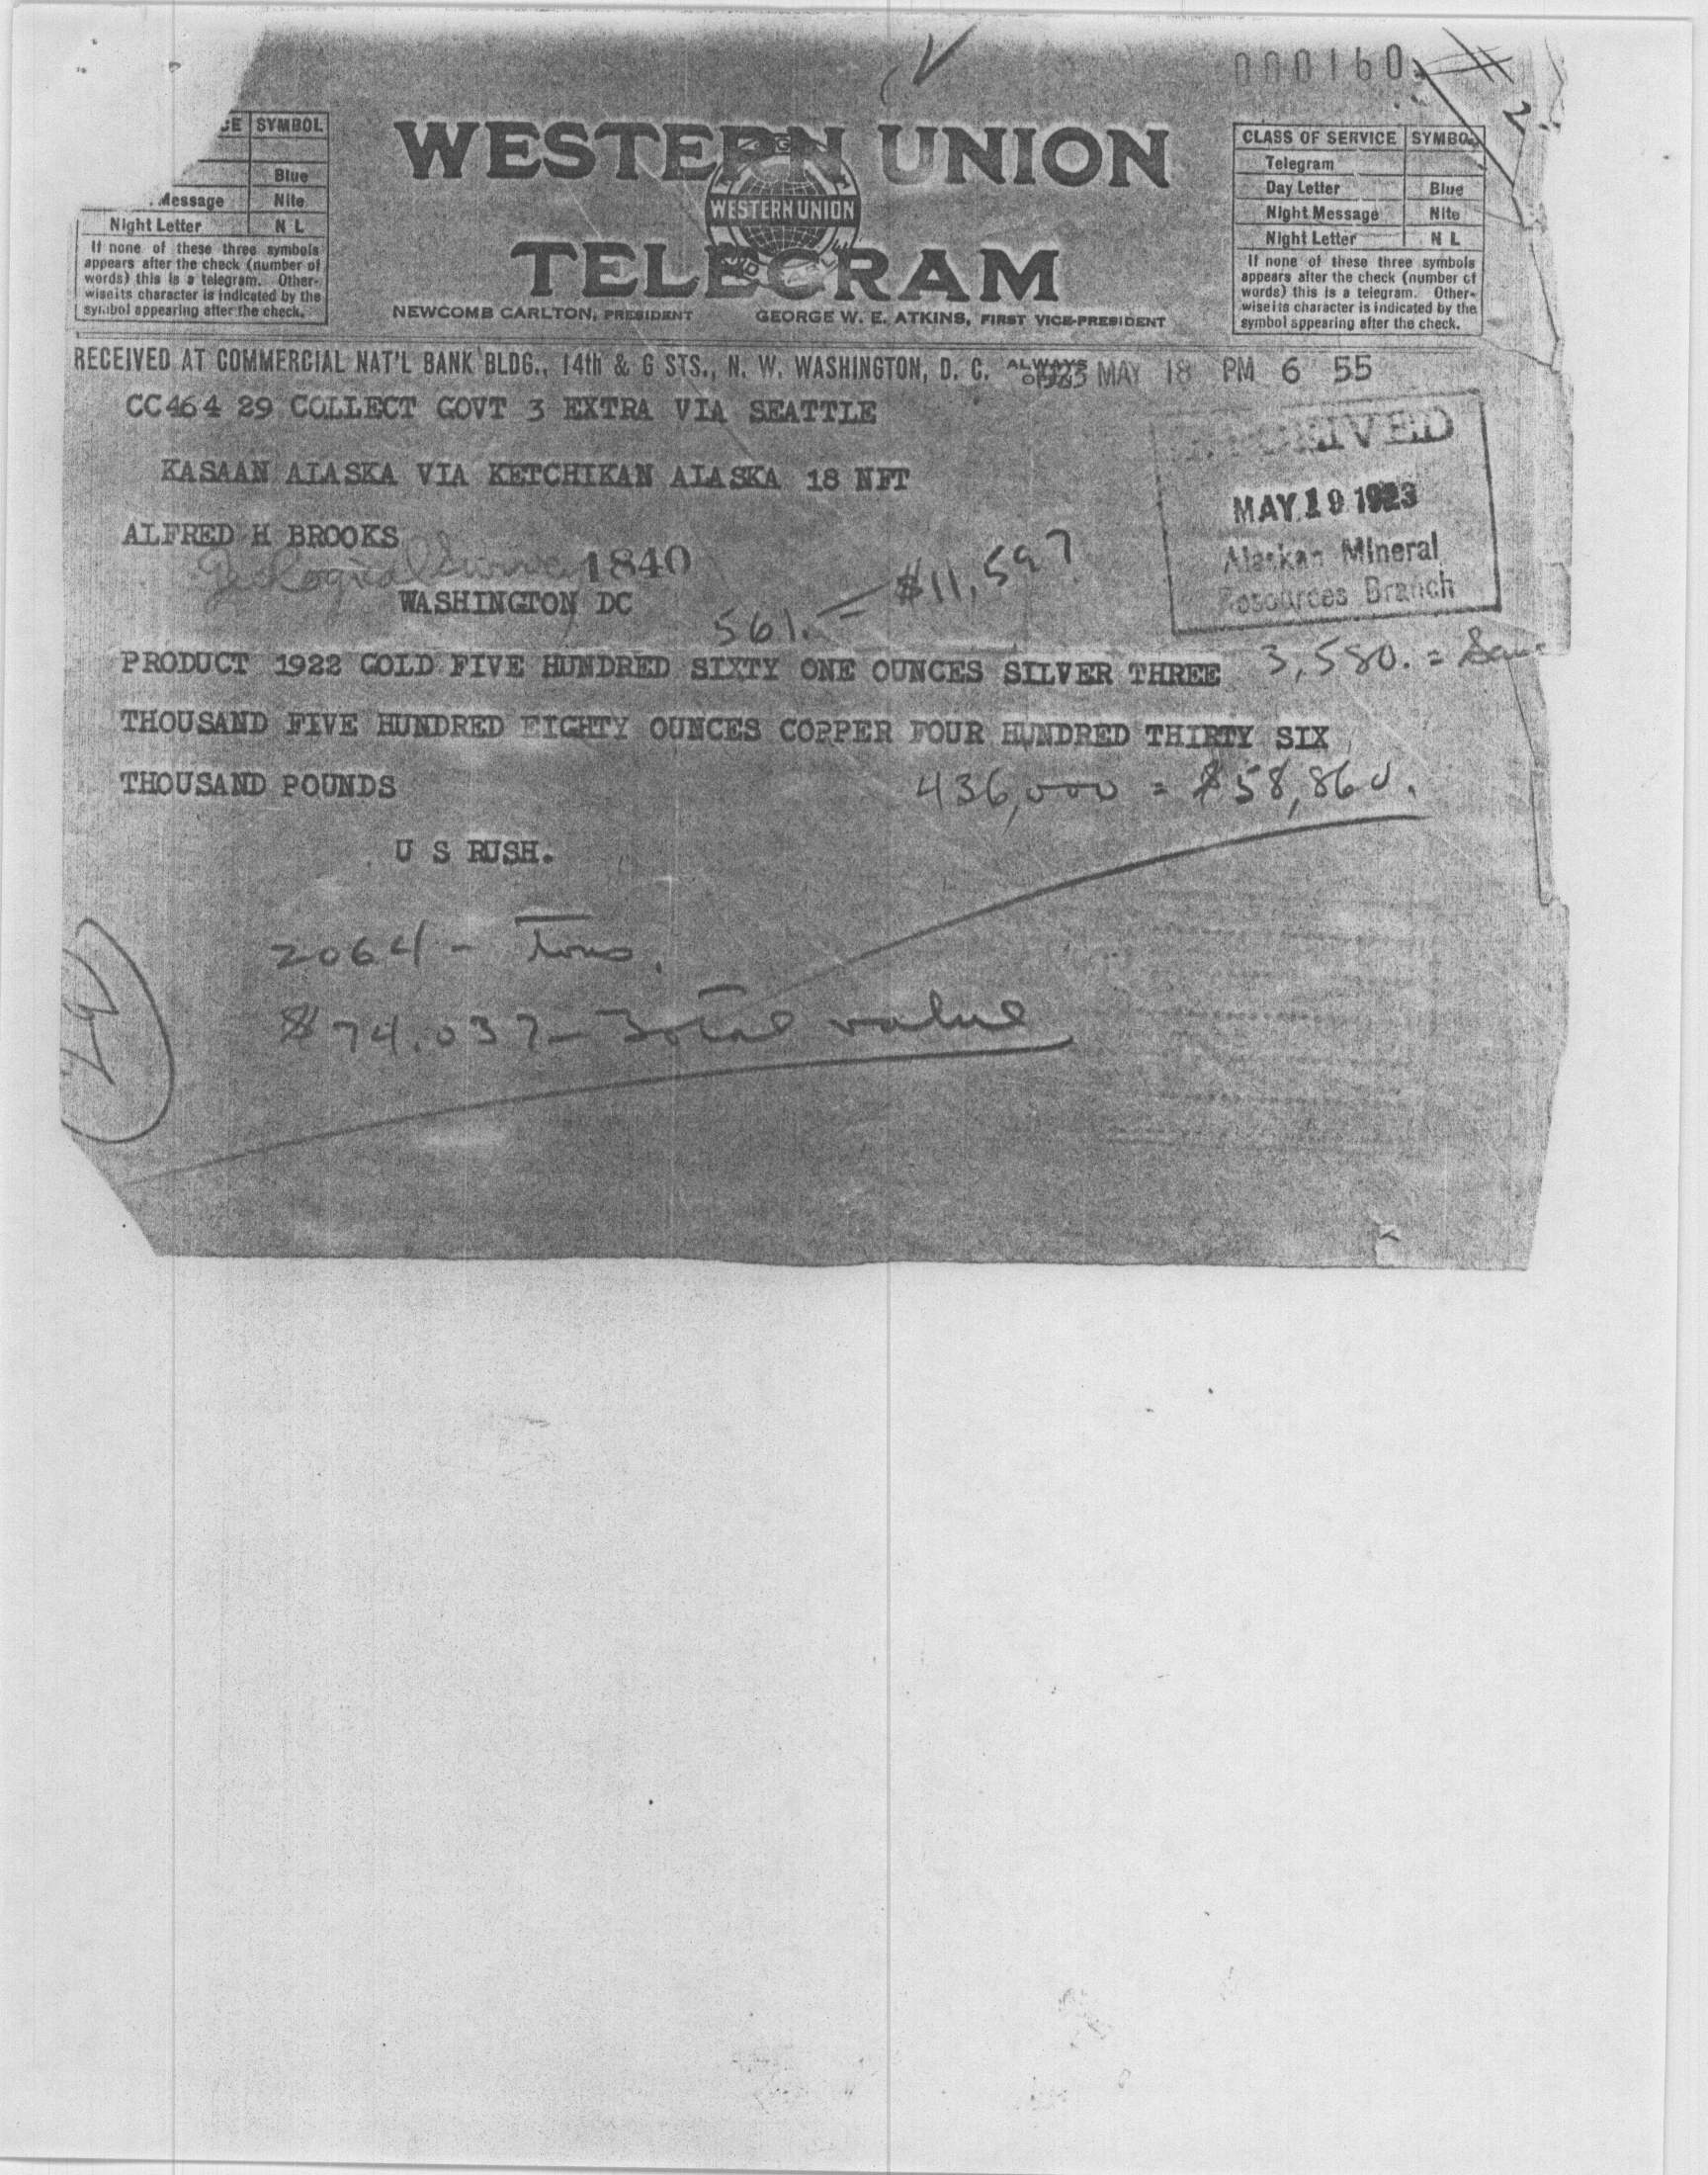 000160
# 2
CE SYMBOL
Blue
Message Nite
Night Letter N L
If none of these three symbols
appears after the check (number of
words) this is a telegram. Other-
wise its character is indicated by the
symbol appearing after the check.
WESTERN UNION
WESTERN UNION
TELEGRAM
NEWCOMB CARLTON, PRESIDENT GEORGE W. E. ATKINS, FIRST VICE-PRESIDENT
CLASS OF SERVICE SYMBOL
Telegram
Day Letter Blue
Night Message Nite
Night Letter N L
If none of these three symbols
appears after the check (number of
words) this is a telegram. Other-
wise its character is indicated by the
symbol appearing after the check.
RECEIVED AT COMMERCIAL NAT'L BANK BLDG., 14th & G STS., N. W. WASHINGTON, D. C. ALWAYS MAY 18 PM 6 55
CC464 29 COLLECT GOVT 3 EXTRA VIA SEATTLE
KASAAN ALASKA VIA KETCHIKAN ALASKA 18 NFT
RECEIVED
MAY 19 1923
Alaskan Mineral
Resources Branch
ALFRED H BROOKS
Geological Survey 1840
WASHINGTON DC
561. = $11,597
PRODUCT 1922 GOLD FIVE HUNDRED SIXTY ONE OUNCES SILVER THREE 3,580. =
THOUSAND FIVE HUNDRED EIGHTY OUNCES COPPER FOUR HUNDRED THIRTY SIX
THOUSAND POUNDS 436,000 = $58,860.
U S RUSH.
2064 - Tons.
$74,037 - Total value